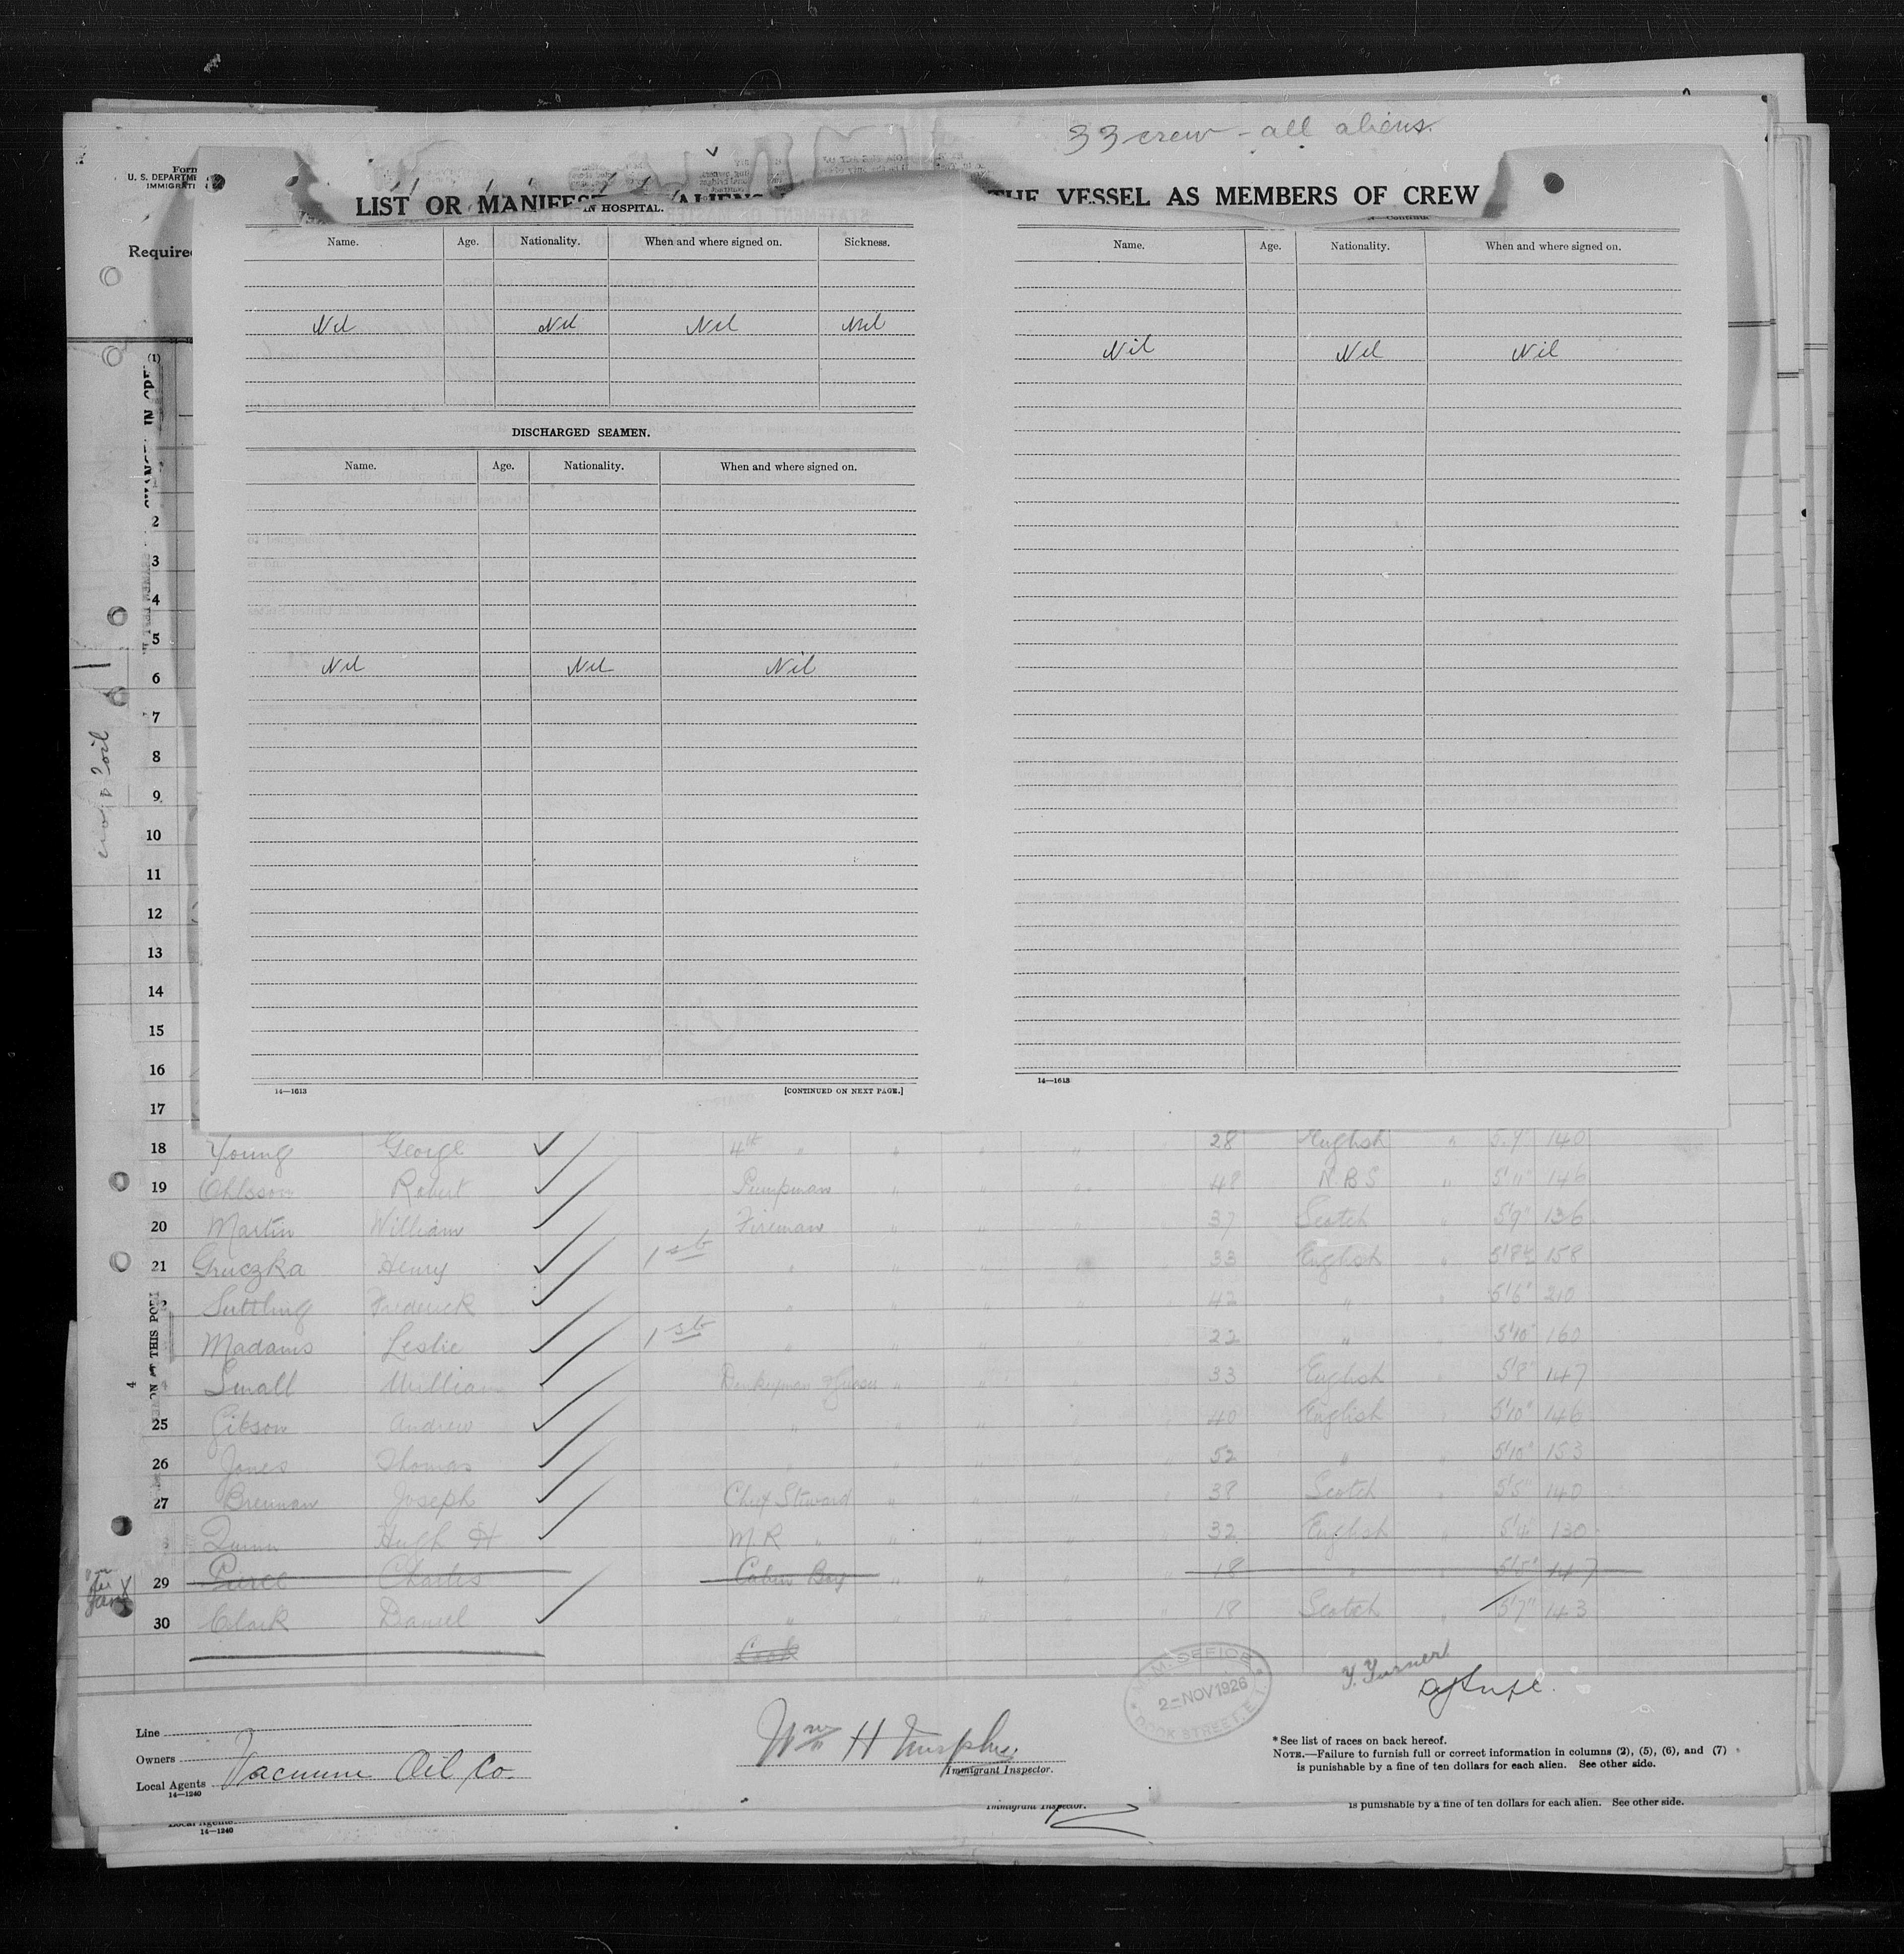 33 crew - all aliens.
Form
U. S. DEPARTME
IMMIGRATI
LIST OR MANIFEST ALIENS THE VESSEL AS MEMBERS OF CREW
Required
IN HOSPITAL.
Name. Age. Nationality. When and where signed on. Sickness.
Nil Nil Nil Nil
DISCHARGED SEAMEN.
Name. Age. Nationality. When and where signed on.
Nil Nil Nil
14—1613 [CONTINUED ON NEXT PAGE.]
Name. Age. Nationality. When and where signed on.
Nil Nil Nil
14—1613
(1)
2
3
4
5
6
7
8
9
10
11
12
13
14
15
16
17
18 Young George 4th " " " " 28 English " 140
19 Ohlsson Robert Pumpman " " " " 48 N.B.S " 5'11" 146
20 Martin William Fireman " " " " 37 Scotch " 5'9" 136
21 Gruczka Henry 1st " " " " " 33 English " 158
Suttling Frederick " " " " " 42 " " 5'6" 210
Madams Leslie 1st " " " " " 22 " " 5'10" 160
Small William Donkeyman " " " " 33 English " 5'8" 147
25 Gibson Andrew " " " " " 40 English " 5'10" 146
26 Jones Thomas " " " " " 52 " " 5'10" 153
27 Brennan Joseph Chief Steward " " " " 38 Scotch " 5'5" 140
Quinn Hugh H M.R. " " " " " 32 English " 5'4" 130
29 Pierce Charles Cabin Boy " " " " 18 " " 5'5" 147
30 Clark Daniel " " " " " 18 Scotch " 5'7" 143
Cook
M.M. OFFICE
2-NOV 1926
DOCK STREET, E.1.
Line
Owners
Local Agents Vacuum Oil Co.
14—1240
Wm H Murphy
Immigrant Inspector.
*See list of races on back hereof.
NOTE.—Failure to furnish full or correct information in columns (2), (5), (6), and (7)
is punishable by a fine of ten dollars for each alien. See other side.
Local Agents
14—1240
Immigrant Inspector.
is punishable by a fine of ten dollars for each alien. See other side.